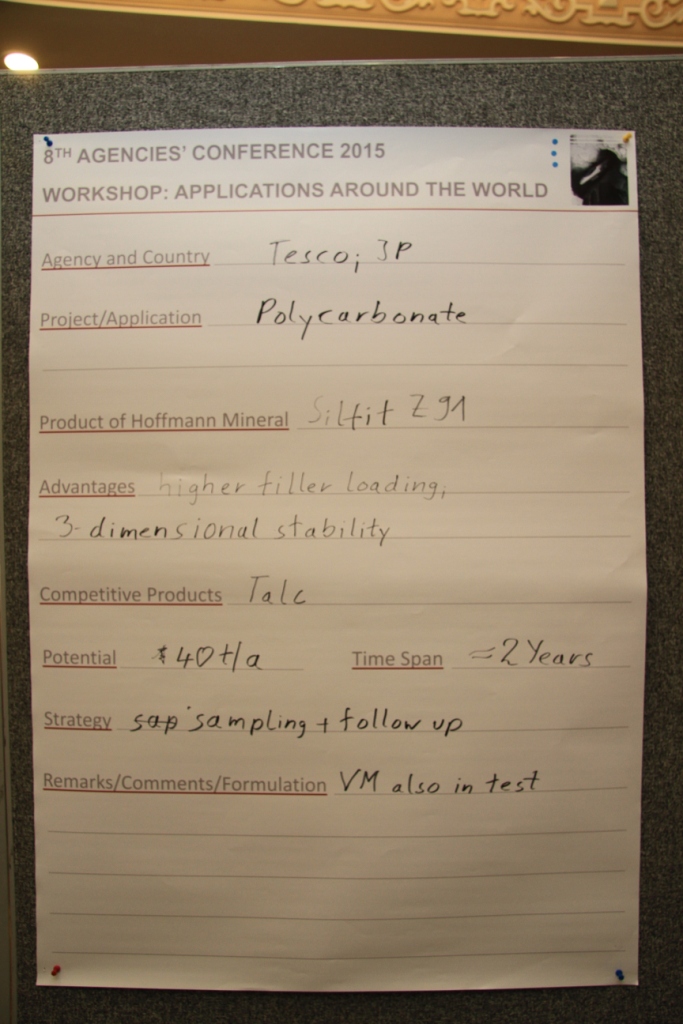 8TH AGENCIES' CONFERENCE 2015
WORKSHOP: APPLICATIONS AROUND THE WORLD
Agency and Country Tesco; JP
Project/Application Polycarbonate
Product of Hoffmann Mineral Silfit Z 91
Advantages higher filler loading;
3-dimensional stability
Competitive Products Talc
Potential 40 t/a Time Span ≈ 2 Years
Strategy sap sampling + follow up
Remarks/Comments/Formulation VM also in test